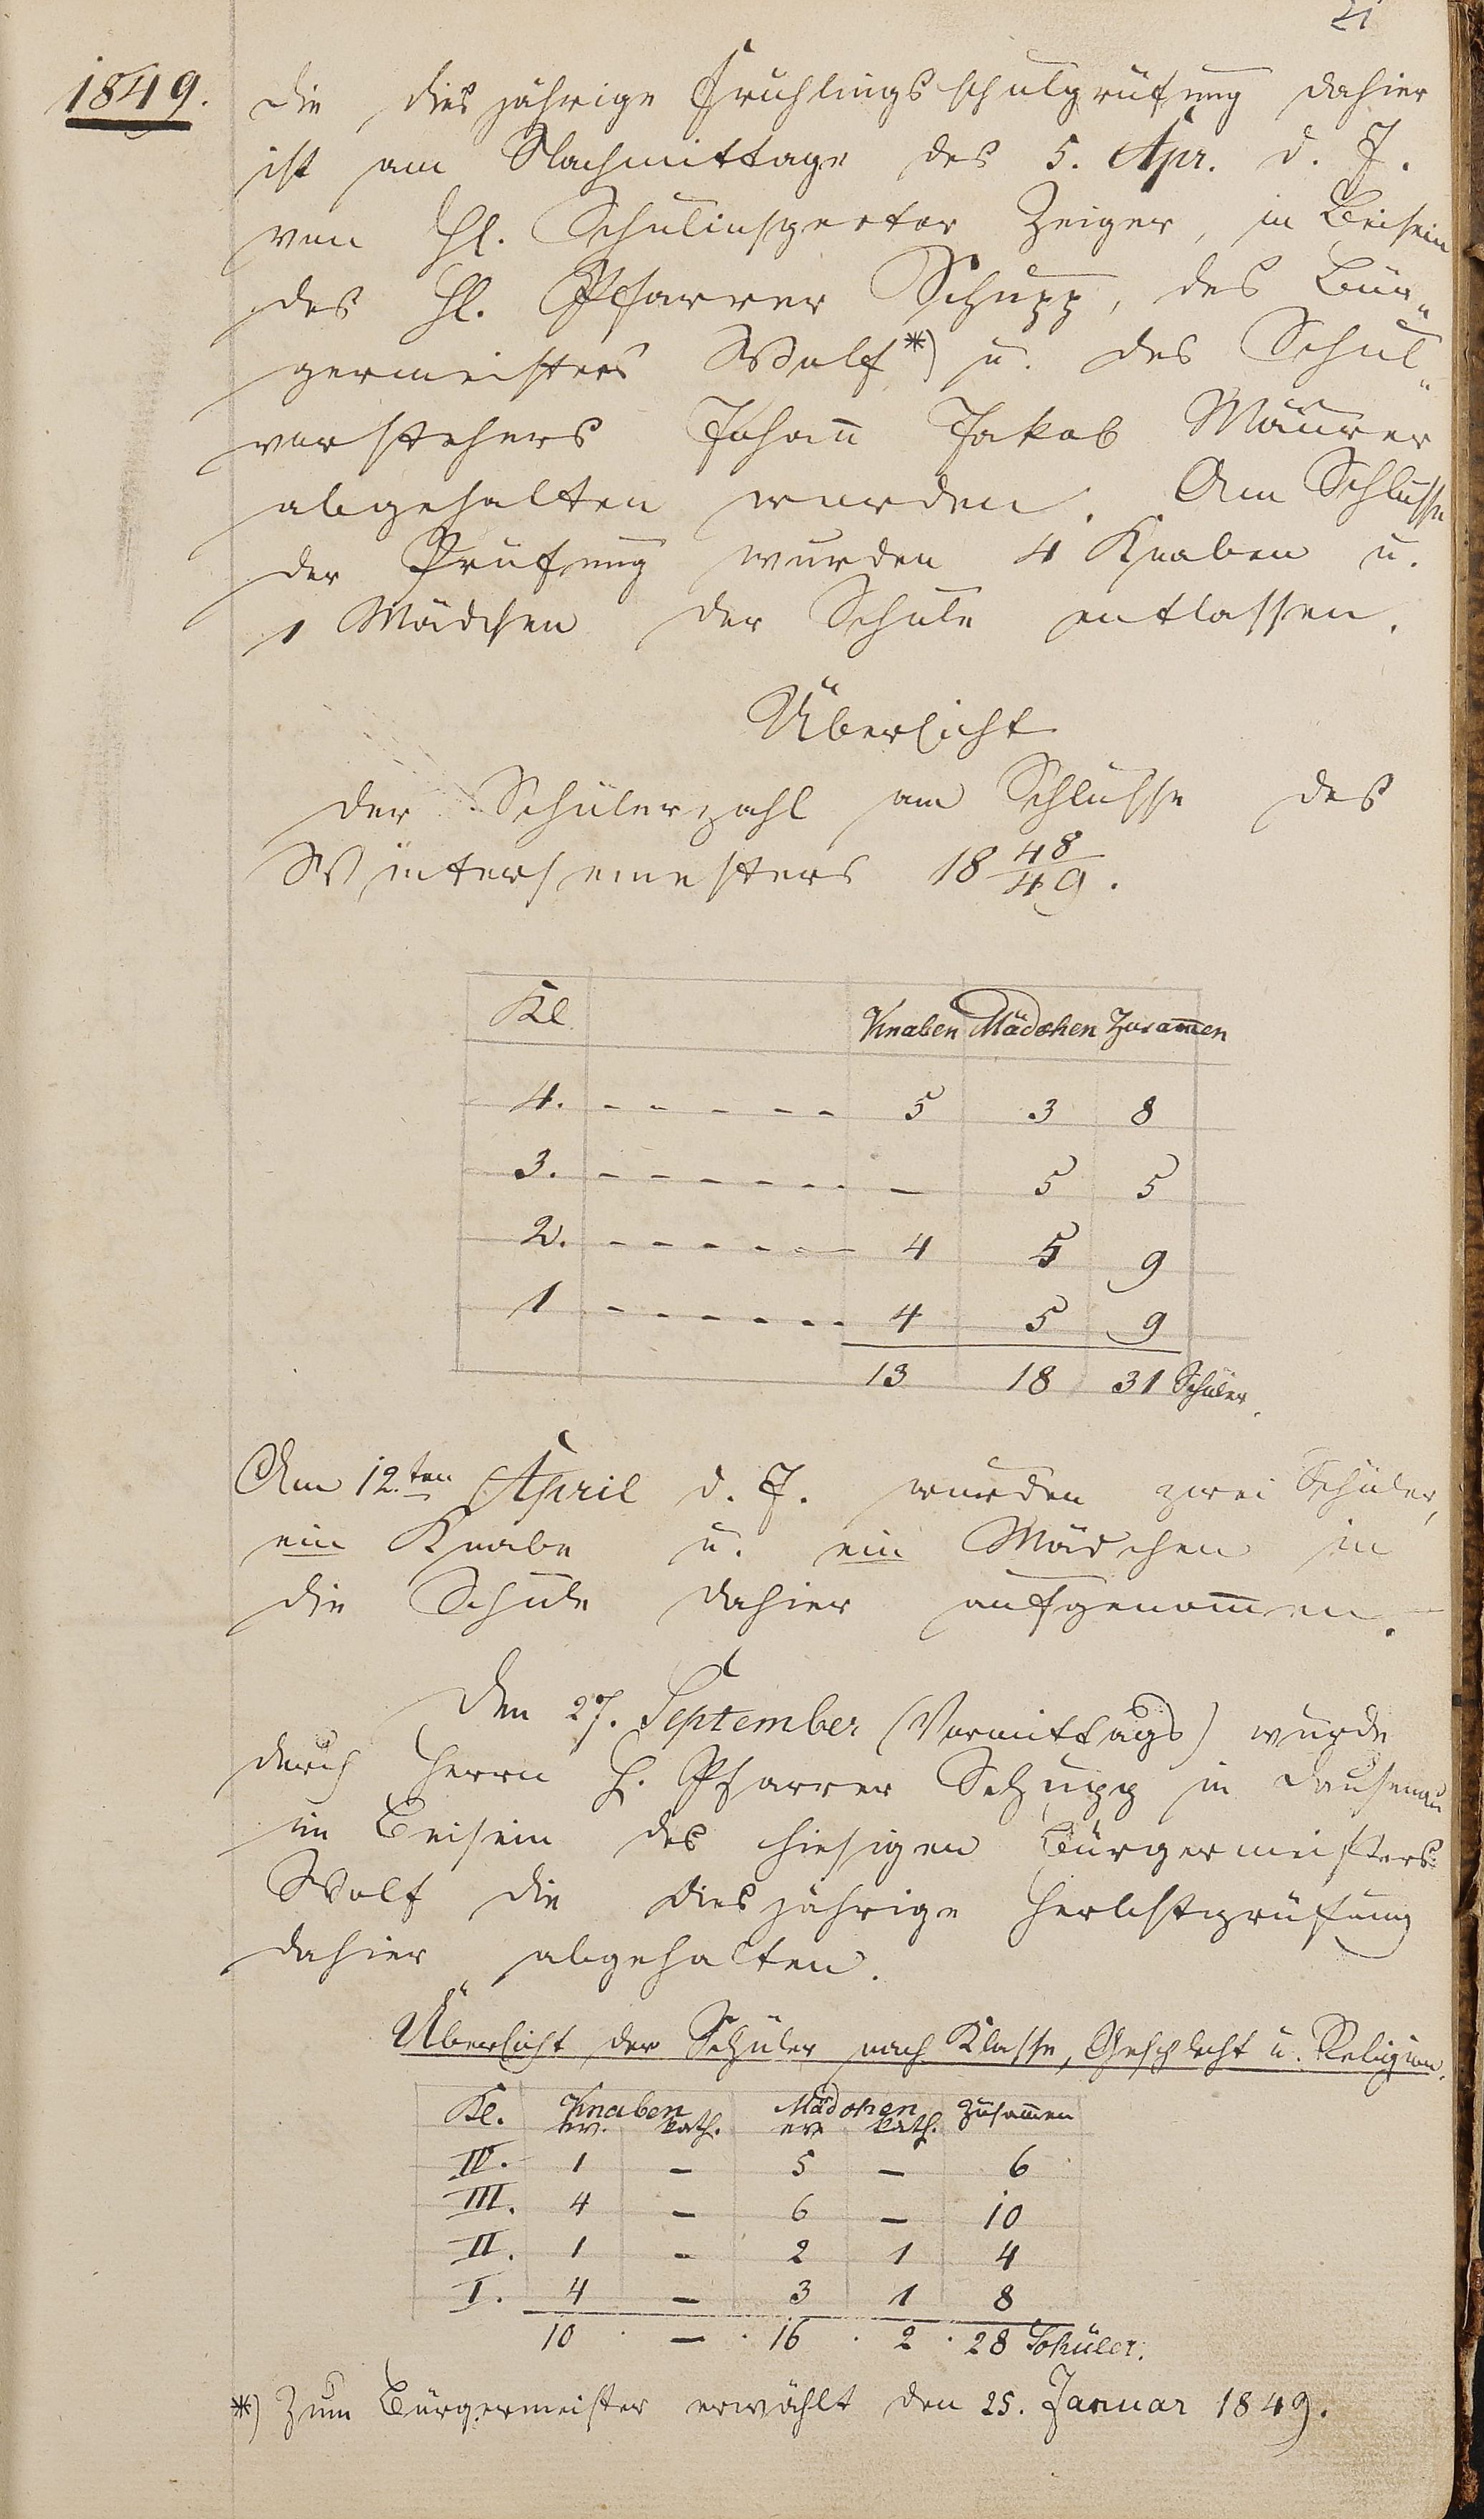 21
1849.
Die diesjährige Fruhlingsschulprüfung dahier
ist am Nachmittage des 5. Apr. d. J.
von H. Schulinspector Zeiger, in Beisein
des H. Pfarrer Schupp, des Bür„
germeisters Wolf *) u. des Schul„
vorstehers Johan̄ Jakob Maurer
abgehalten worden. Am Schlusse
der Prüfung wurden 4 Knaben u.
1 Mädchen der Schule entlassen.
Übersicht
der Schülerzahl am Schlusse des
Wintersemesters 18 48/49.
Kl Knaben Mädchen Zusam̄en
4. - - - - - 5 3 8
3. - - - - - - – 5 5
2. - - - - - - 4 5 9
1 - - - - - - 4 5 9
13 18 31 Schüler.
Am 12.ten April d. J. wurden zwei Schüler,
ein Knabe u. ein Mädchen in
die Schule dahier aufgenom̄en.
Den 27. September (Vormittags) wurde
durch Herrn H. Pfarrer Schupp in Dausenau
im Beisein des hiesigen Bürgermeisters
Wolf die diesjährige Herbstprüfung
dahier abgehalten.
Übersicht der Schüler nach Klasse, Geschlecht u. Religion.
Kl. Knaben Mädchen Zusam̄en
ev. kath. ev. kath.
IV. 1 – 5 – 6
III. 4 – 6 – 10
II. 1 – 2 1 4
I. 4 – 3 1 8
10 . – . 16 . 2 . 28 Schüler.
*) Zum Bürgermeister erwählt den 25. Januar 1849.